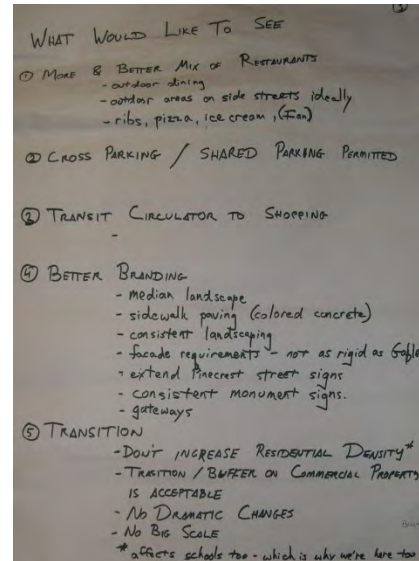 WHAT WOULD LIKE TO SEE
① MORE & BETTER MIX OF RESTAURANTS
- outdoor dining
- outdoor areas on side streets ideally
- ribs, pizza, ice cream, (Fun)
② CROSS PARKING / SHARED PARKING PERMITTED
③ TRANSIT CIRCULATOR TO SHOPPING
-
④ BETTER BRANDING
- median landscape
- sidewalk paving (colored concrete)
- consistent landscaping
- facade requirements - not as rigid as Gable
- extend Pinecrest street signs
- consistent monument signs.
- gateways
⑤ TRANSITION
- DON'T INCREASE RESIDENTIAL DENSITY*
- TRASITION / BUFFER ON COMMERCIAL PROPERTY
IS ACCEPTABLE
- NO DRAMATIC CHANGES
- NO BIG SCALE
* affects schools too - which is why we're here too